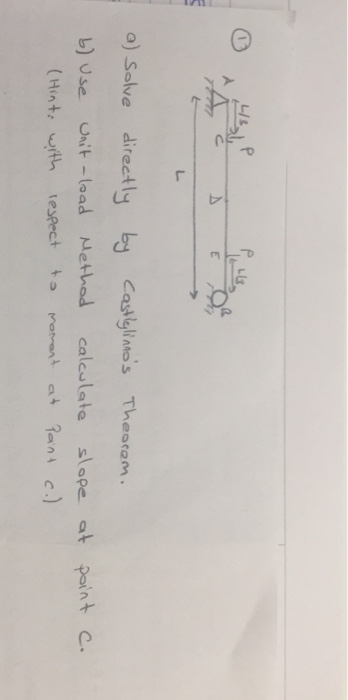 13
L/3 P P L/3
A C D E B
L
a) Solve directly by Castiglino's Theorem.
b) Use Unit-load Method calculate slope at point C.
(Hint: with respect to moment at Point C.)